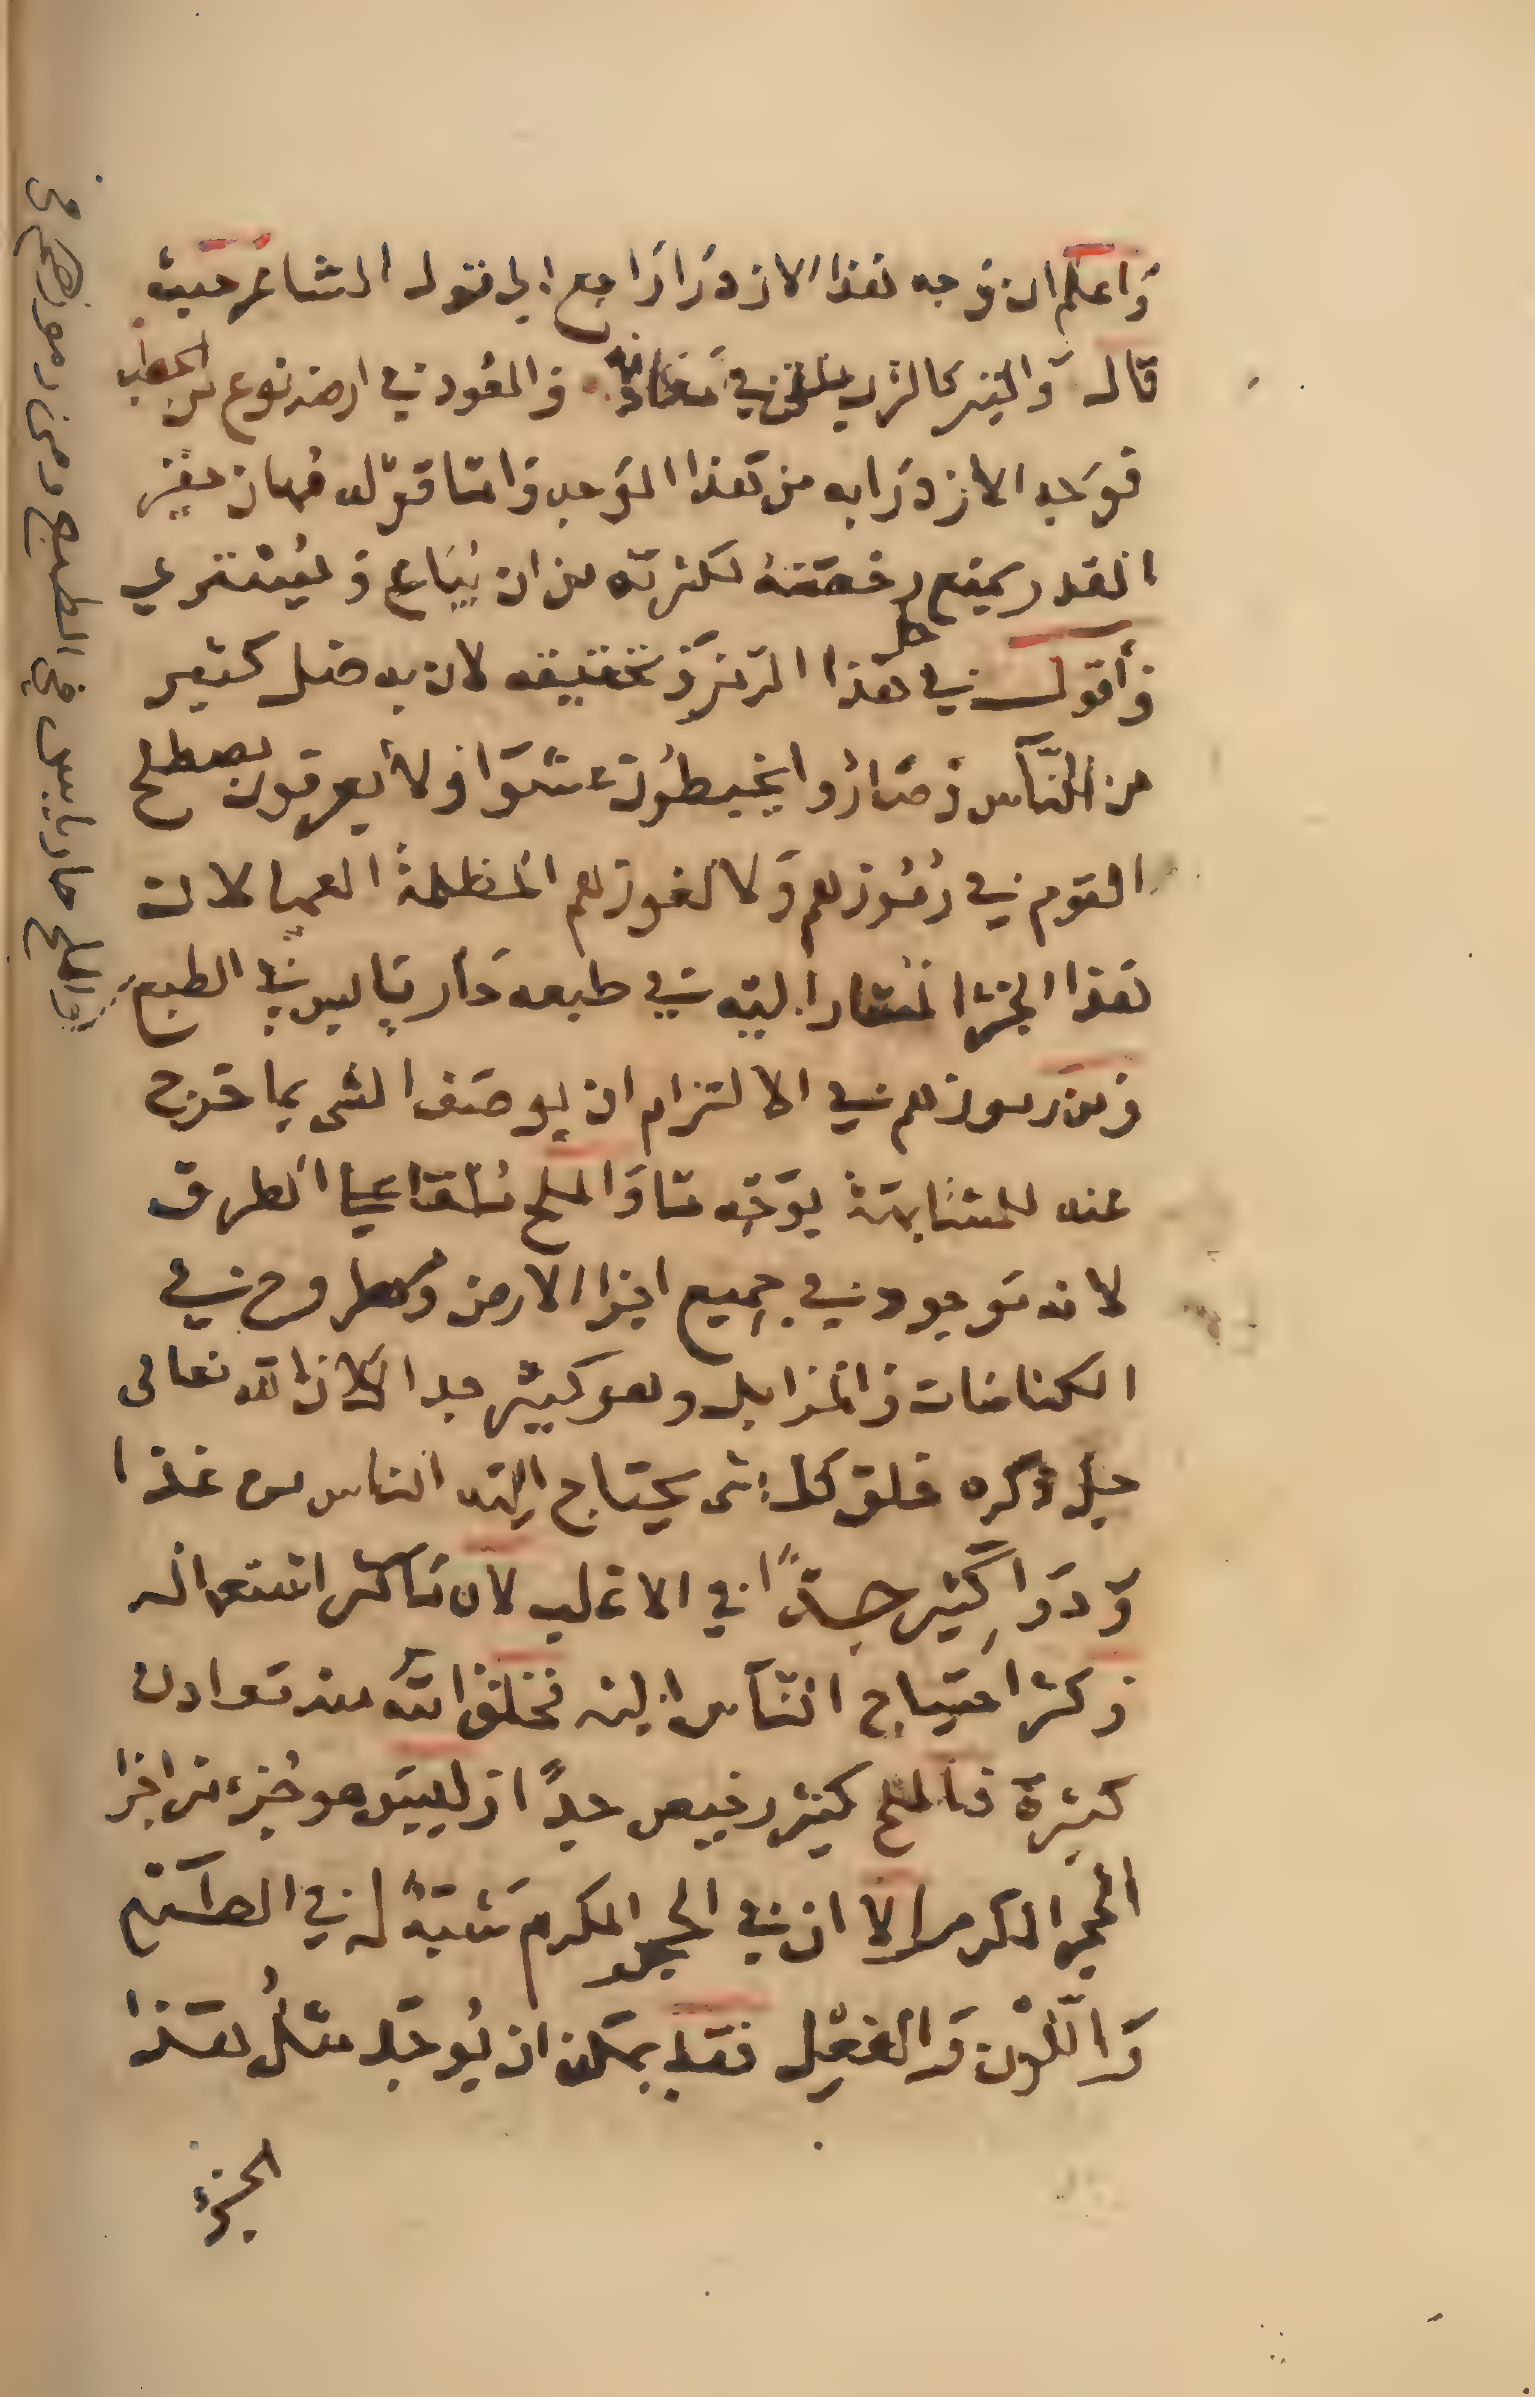 وَاعلم ان وجه هذا الازدرَا رَاجع الى قول الشاعر حيث
قال وَالتبر كالترب ملقى في مَعَادنه والعُود في ارضه نوع من الحطب
فوَجه الازدرَا به من هذا الوَجه وَامّا قوله مُهان حقير
القدر يمنع رخصَته لكثرته من ان يُبَاع وَيُشترى
وَأقول في حل هذا الرَمز وَتحقيقه لان به ضل كثير
من النَّاس وَصَارُوا يخبطُون عشوَا وَلا يعرفون مصطلح
القوم في رُمُوزهم وَلا لغوزهم المظلمة العمها لان
هذا الجزا المشار اليه في طبعه حَار يَابس في الطبع
وَمن رموزهم في الالتزام ان يوصَف الشى بما خرج
عنه للمشَابهَة بوَجْه مَا وَالملح مُلقا على الطرق
لانه مَوجود في جميع اجزا الارض وَمطروح في
الكناسات وَالمزابل وهو كثير جدا لان الله تعالى
جل ذكره خلق كل شى يحتاج اليه الناس من غذا
وَدَوَا كَثِير جِدًّا في الاغلب لان مَا كثر استعماله
وَكثر احتياج النّاس اليه فخلق الله منه معادن
كثيرَة فالملح كثير رخيص جدًا وَليسَ هو جُزء من اجزا
الحجر المكرم الا ان في الحجر المكرم شَبَهًا له في الطَعْم
وَاللَّوْن وَالفعْل فقد يمكن ان يُوجَد مثلُ هَذا
الجزء
والملح حار يابس في الطبع ومن رموزهم في